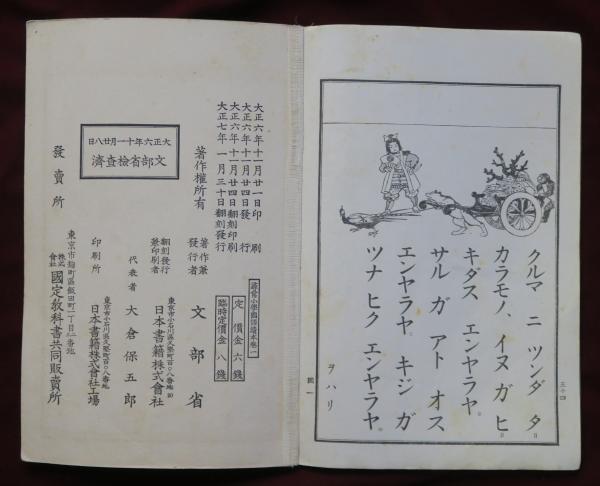 クルマ ニ ツンダ タ
カラモノ、イヌ ガ ヒ
キダス エンヤラヤ。
サル ガ アト オス
エンヤラヤ。キジ ガ
ツナ ヒク エンヤラヤ。
ヲハリ
五十四
國一
大正六年十一月廿一日印刷
大正六年十一月廿四日發行
大正六年十一月廿四日翻刻印刷
大正七年一月三十日翻刻發行
著作權所有
大正六年十一月廿八日
文部省檢查濟
發賣所
尋常小學國語讀本卷一
定價金六錢
臨時定價金八錢
著作兼
發行者
文部省
翻刻發行
兼印刷者
東京市小石川區久堅町百〇八番地
日本書籍株式會社
代表者 大倉保五郎
印刷所
東京市小石川區久堅町百〇八番地
日本書籍株式會社工場
東京市麴町區飯田町一丁目二番地
株式
會社
國定敎科書共同販賣所